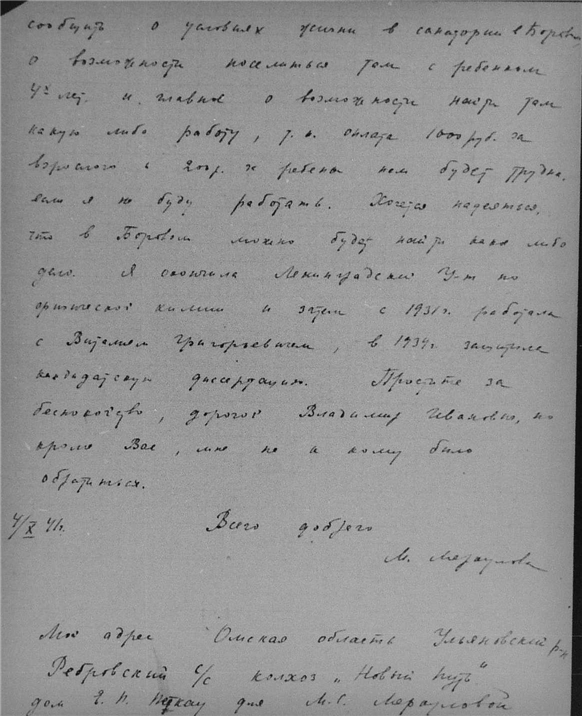 сообщить о условиях жизни в санатории в Боров
о возможности поселиться там с ребенком
4х лет. и главное о возможности найти там
какую либо работу, т.к. оплата 1000 руб. за
взрослого и 200 р. за ребенка нам будет трудна,
если я не буду работать. Хочется надеяться,
что в Боровом можно будет найти какое либо
дело. Я окончила Ленинградский У-т по
физической химии и затем с 1931 г. работала
с Виталием Григорьевичем, в 1934 г. защитила
кандидатскую диссертацию. Простите за
беспокойство, дорогой Владимир Иванович, но
кроме Вас, мне не к кому было
обратиться.
4/X 41 г. Всего доброго
М.
Мой адрес Омская область Ульяновский р-н
Ребровский с/с колхоз "Новый путь"
дом Е. П. для М. С.